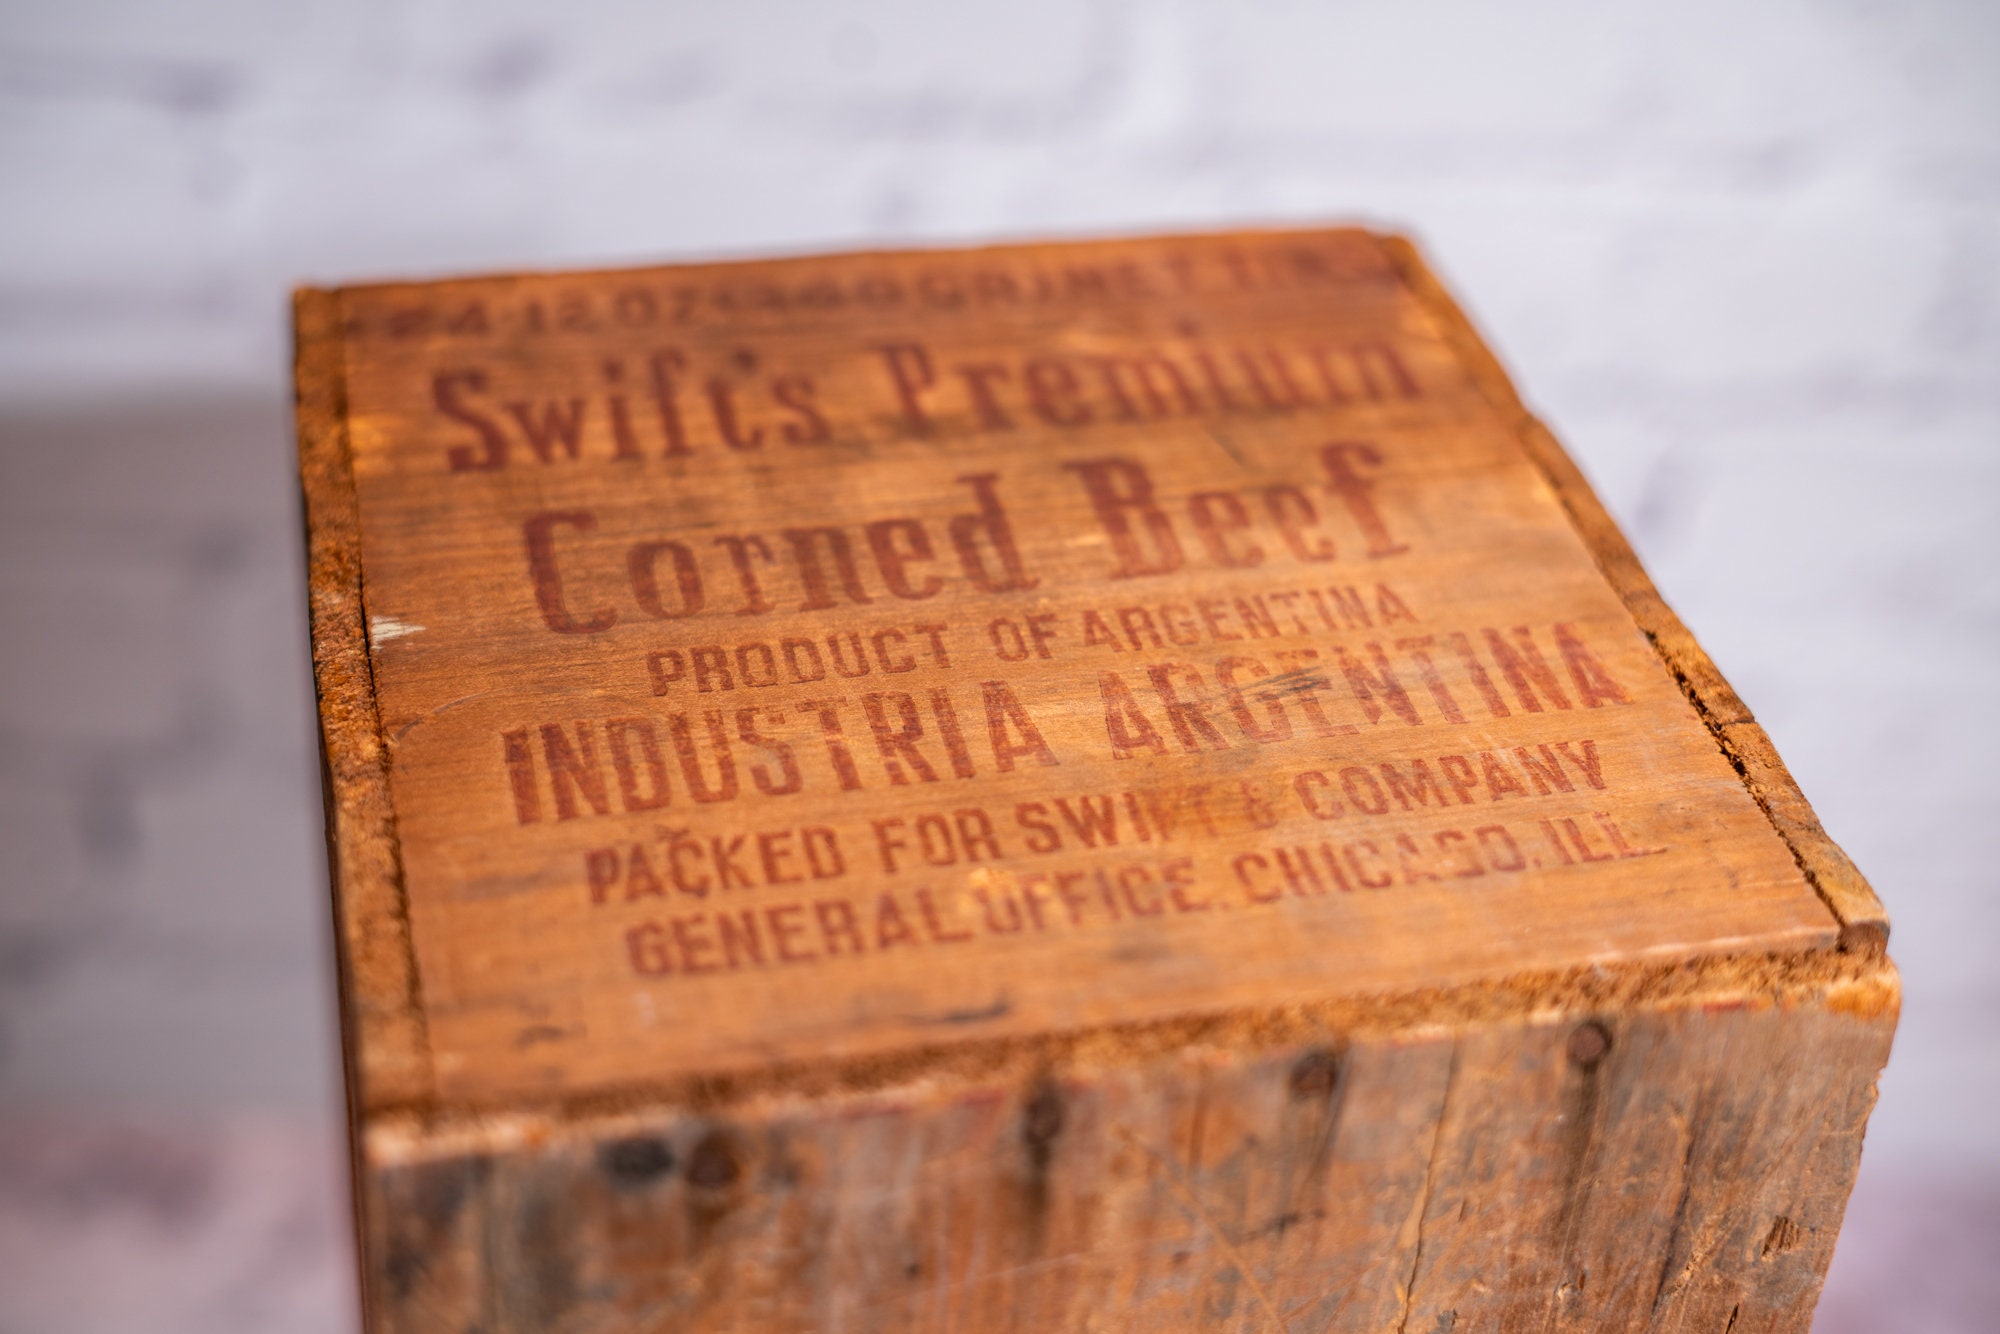 24-12 OZ (340 GR) NET TINS
Swift's Premium
Corned Beef
PRODUCT OF ARGENTINA
INDUSTRIA ARGENTINA
PACKED FOR SWIFT & COMPANY
GENERAL OFFICE. CHICAGO. ILL.